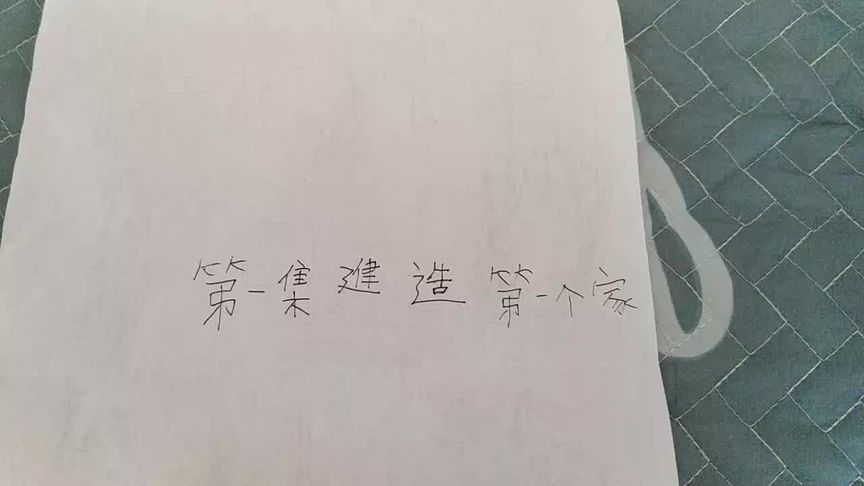 第一集建造第一个家